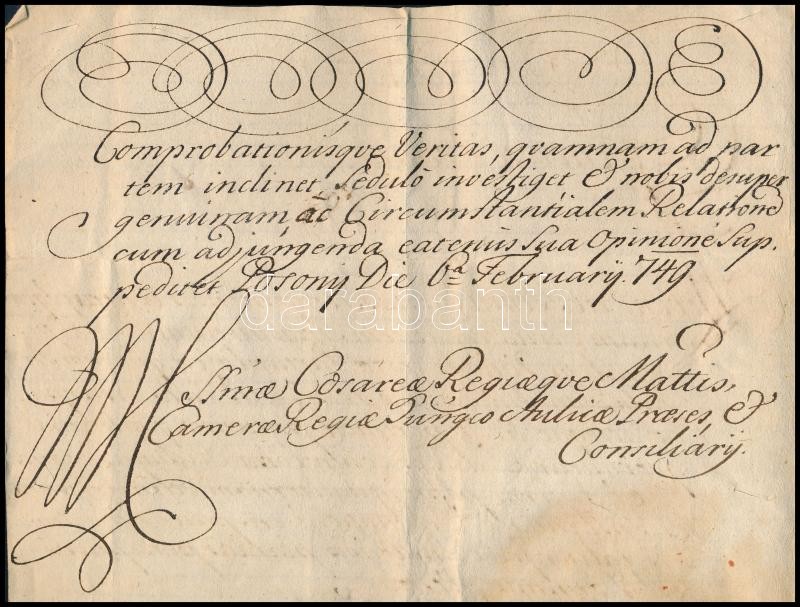 Comprobationisqve Veritas, qvamnam ad par
tem inclinet, Sedulò investiget & nobis desuper
genuinam ac Circumstantialem Relatione
cum adjungenda eatenus Sua Opinione Sup.
peditet. Posony Die 6ta Februarij. 749.
Mssmæ Cæsareæ Regiæqve Mattis,
Cameræ Regiæ Hungco Aulicæ Præses, &
Consiliarij.
darabanth